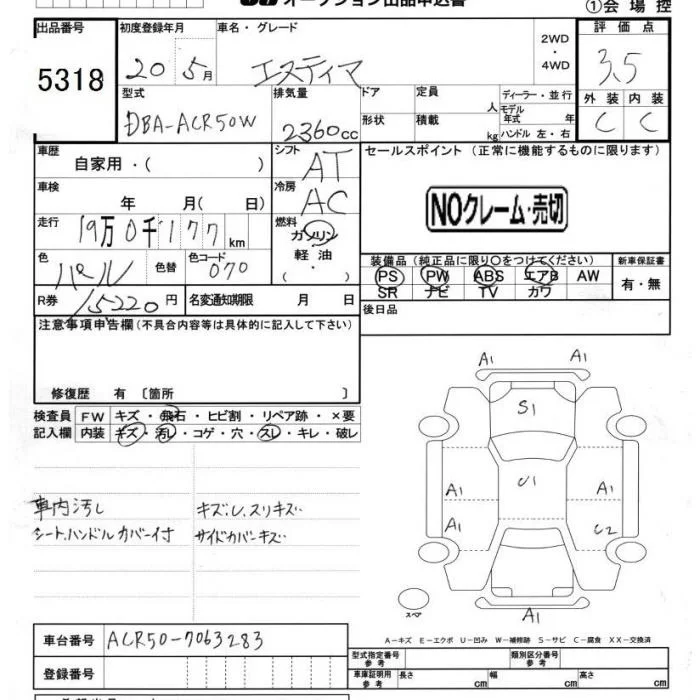 オークション出品申込書
①会場控
出品番号
5318
初度登録年月
20 5月
車名・グレード
エスティマ
2WD
・
4WD
評価点
3.5
外装 内装
C C
型式
DBA-ACR50W
排気量
2360cc
ドア
形状
定員 人
積載 kg
ディーラー・並行
モデル年式 年
ハンドル 左・右
車歴
自家用・( )
シフト
AT
セールスポイント (正常に機能するものに限ります)
NOクレーム・売切
車検
年 月( 日)
冷房
AC
走行
19万0千177km
燃料
ガソリン
軽油
・
( )
色
パール
色替
色コード
070
装備品(純正品に限り○をつけてください)
PS PW ABS エアB AW
SR ナビ TV カワ
新車保証書
有・無
R券
15220円
名変通知期限 月 日
後日品
注意事項申告欄(不具合内容等は具体的に記入して下さい)
修復歴 有 〔箇所 〕
検査員記入欄
FW キズ・飛石・ヒビ割・リペア跡・×要
内装 キズ・汚れ・コゲ・穴・スレ・キレ・破レ
車内汚し
シート.ハンドルカバー付
キズ.U.スリキズ
サイドカバーキズ
A1 A1
S1
U1
A1 A1
A1 C2
スペア
A1
A-キズ E-エクボ U-凹み W-補修跡 S-サビ C-腐食 XX-交換済
車台番号
ACR50-7063283
登録番号
型式指定番号 参考
類別区分番号 参考
車庫証明用 参考
長さ cm 幅 cm 高さ cm